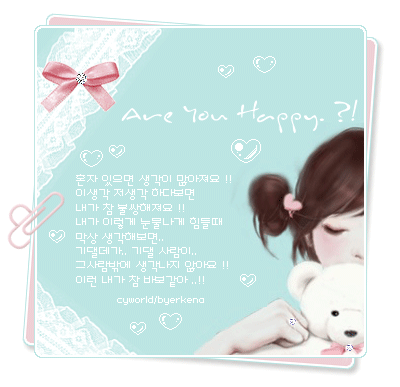 Are You Happy. ?!
혼자 있으면 생각이 많아져요 !!
이생각 저생각 하다보면
내가 참 불쌍해져요 !!
내가 이렇게 눈물나게 힘들때
막상 생각해보면..
기댈데가.. 기댈 사람이..
그사람밖에 생각나지 않아요 !!
이런 내가 참 바보같아 ..!!
cyworld/byerkena